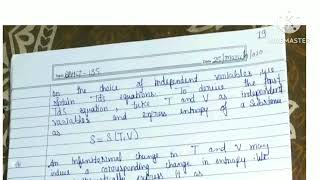 19
BPHCT-135
Date 25/March/2020
MASTER
On the choice of independent variables, we
obtain Tds equations. To derive the first
Tds equation, take T and V as independent
variables and express entropy of a substance
as
S = S(T,V)
An infinitesimal change in T and V may
induce a corresponding change in entropy
express it as